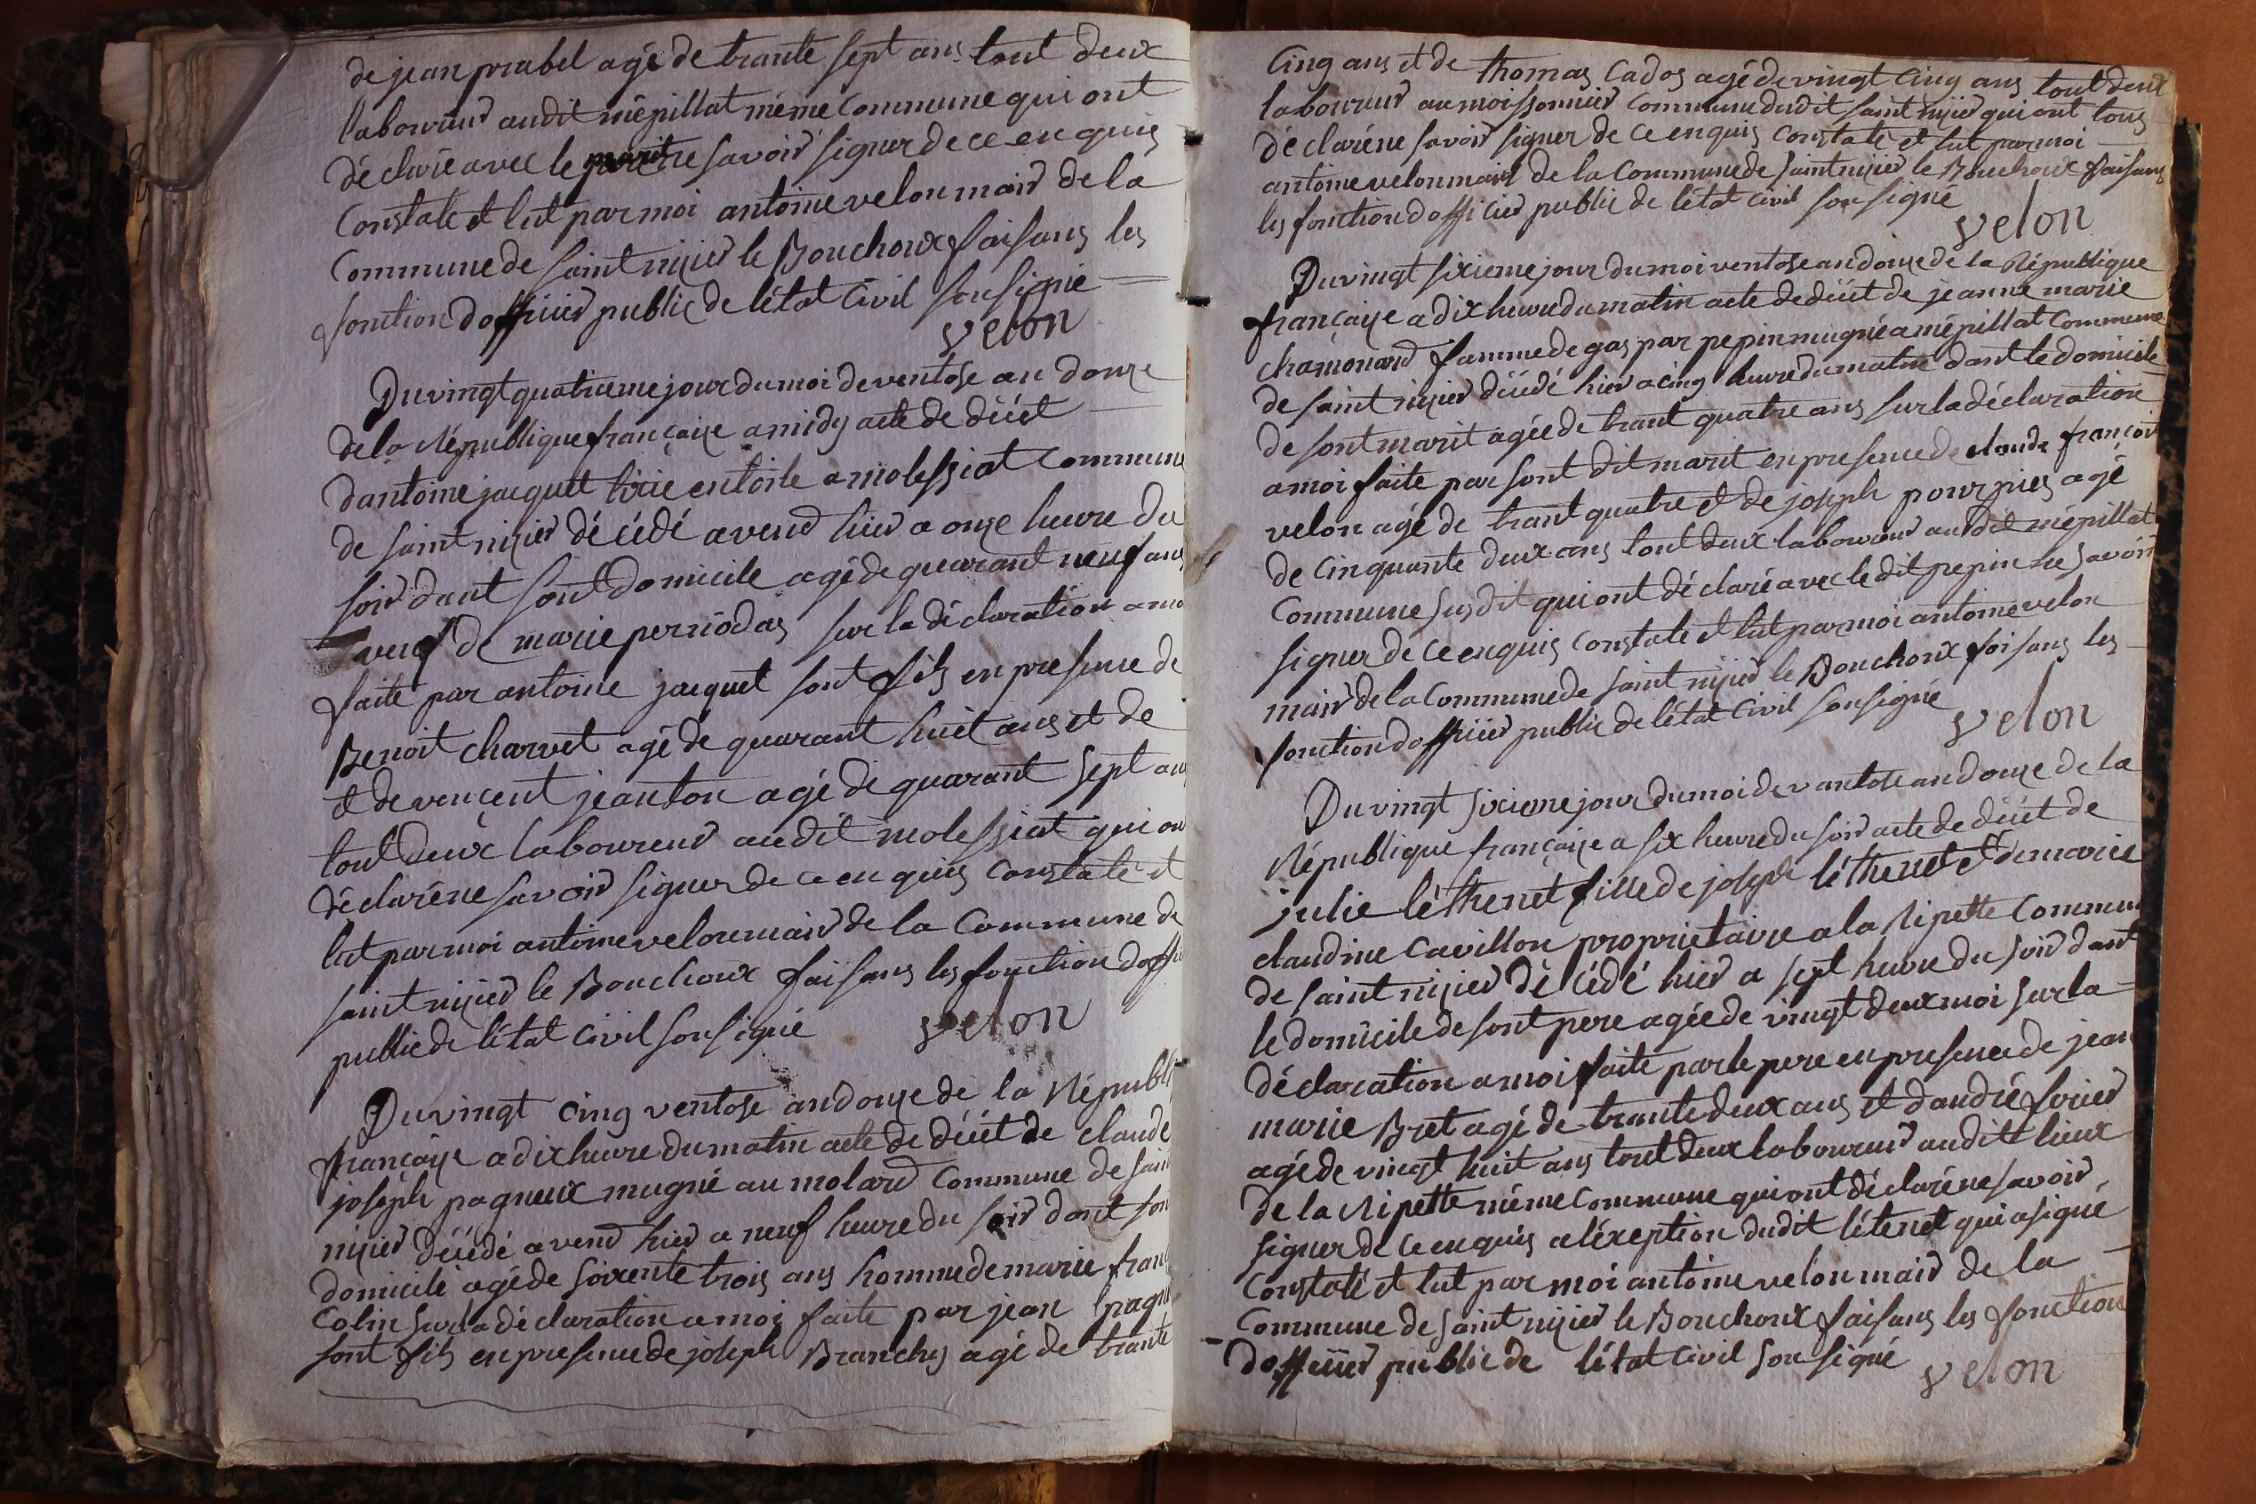 de jean prabel agé de trante sept ans tout deux
laboureur audit mépillat même Commune qui ont
déclaré avec le maritre savoir signer de ce enquis
Constaté et lut par moi antoine velon mair de la
Commune de saint nizier le Bouchoux faisans les
fonction dofficier public de létat Civil sousigné
velon
Du vingt quatrieme jour du moi de ventose an douze
de la République françaize a midy acte de décét
dantoine jacquet tixie en toile a molessiat Commune
de saint nizier décédé avend hier a onze heure du
soir dant sont domicile agé de quarant neuf ans
veuf de marie perriodas sur la déclaration a moi
faite par antoine jacquet sont fils en presence de
Benoit charvet agé de quarant huit ans et de
et de vencent jeanton agé de quarant sept ans
tout deux laboureur audit molessiat qui ont
déclaré ne savoir signer de ce enquis Constaté et
lut par moi antoine velon mair de la Commune de
saint nizier le Bouchoux faisans les fonction doffi
public de létat Civil sousigné velon
Du vingt Cinq ventose an douze de la Républi
françaize a dix heure du matin acte de décét de claude
joséph pagneux mugnié au molard Commune de saint
nizier décédé avend hier a neuf heure du soir dant son
domicile agé de soixente trois ans homme de marie fran
Colin sur la déclaration a moi faite par jean pagn
sont fils en presence de joseph Branchy agé de trante
Cinq ans et de thomas Cados agé de vingt Cinq ans tout deux
laboureur au moissonnier Commune dudit saint nizier qui ont tous
déclaré ne savoir signer de ce enquis Constaté et lut par moi
antoine velon mair de la Commune de saint nizier le Bouchoux faisans
les fonction dofficier public de létat Civil sousigné
velon
Du vingt sixieme jour du moi ventose an douze de la République
françaize a dix heure du matin acte de décét de jeanne marie
chamonard famme de gaspar pepin mugnié a mépillat Commune
de saint nizier décédé hier a cinq heure du matin dant le domicile
de sont marit agée de trant quatre ans sur la déclaration
a moi faite par sont dit marit en presence de claude françois
velon agé de trant quatre et de joseph pourpies agé
de Cinquante deux ans tout deux laboureur audit mépillat
Commune susdit qui ont déclaré avec le dit pepin ne savoir
signer de ce enquis Constaté et lut par moi antoine velon
mair de la Commune de saint nizier le Bouchoux faisans les
fonction dofficier public de létat Civil sousigné
velon
Du vingt sixieme jour du moi de vantose an douze de la
République françaize a six heure du soir acte de décét de
julie léthenet fille de joseph léthenet et de marie
claudine Cavillon proprietaire a la Ripette Commun
de saint nizier décédé hier a sept heure du soir dant
le domicile de sont pere agée de vingt deux moi sur la
déclaration a moi faite par le pere en presence de jean
marie Bret agé de trante deux ans et dandré forier
agé de vingt huit ans tout deux laboureur audit lieux
de la Ripette même Commune qui ont déclaré ne savoir
signer de ce enquis a léxeption dudit létenet qui a signé
Constaté et lut par moi antoine velon mair de la
Commune de saint nizier le Bouchoux faisans les fonction
dofficier public de létat Civil sousigné velon